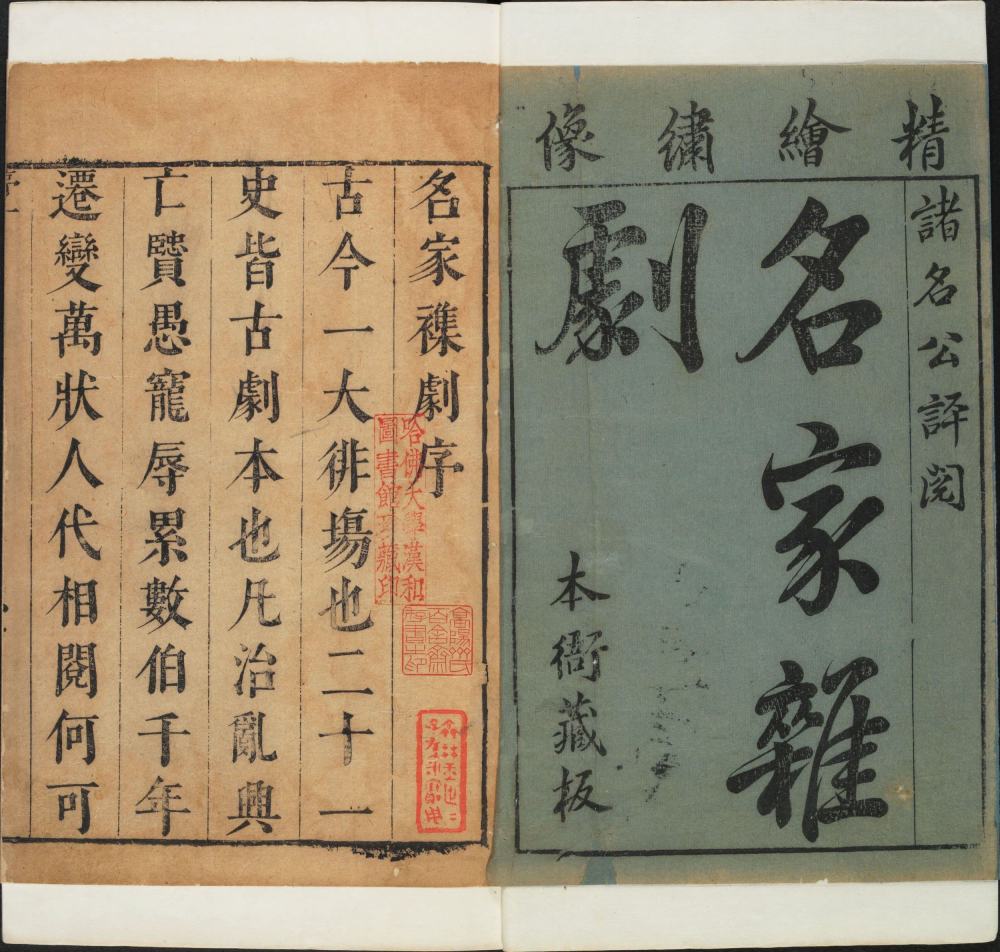 精繪繡像
諸名公評閱
名家雜
劇
本衙藏板
名家襍劇序
古今一大徘塲也二十一
史皆古劇本也凡治亂興
亡賢愚寵辱累數伯千年
遷變萬狀人代相閱何可
哈佛大學漢和
圖書館珍藏印